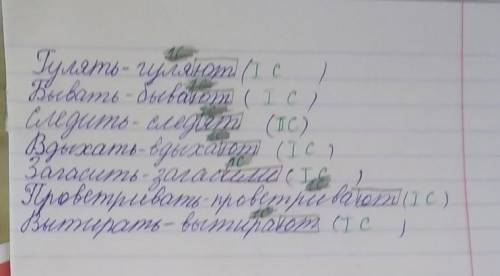 Гулять - гуляют (I С )
Бывать - бывают ( I С )
Следить - следят (II С)
Вдыхать - вдыхают ( I С )
Загасить - загасили ( I С )
Проветривать - проветривают (I С)
Вытирать - вытирают (I С )